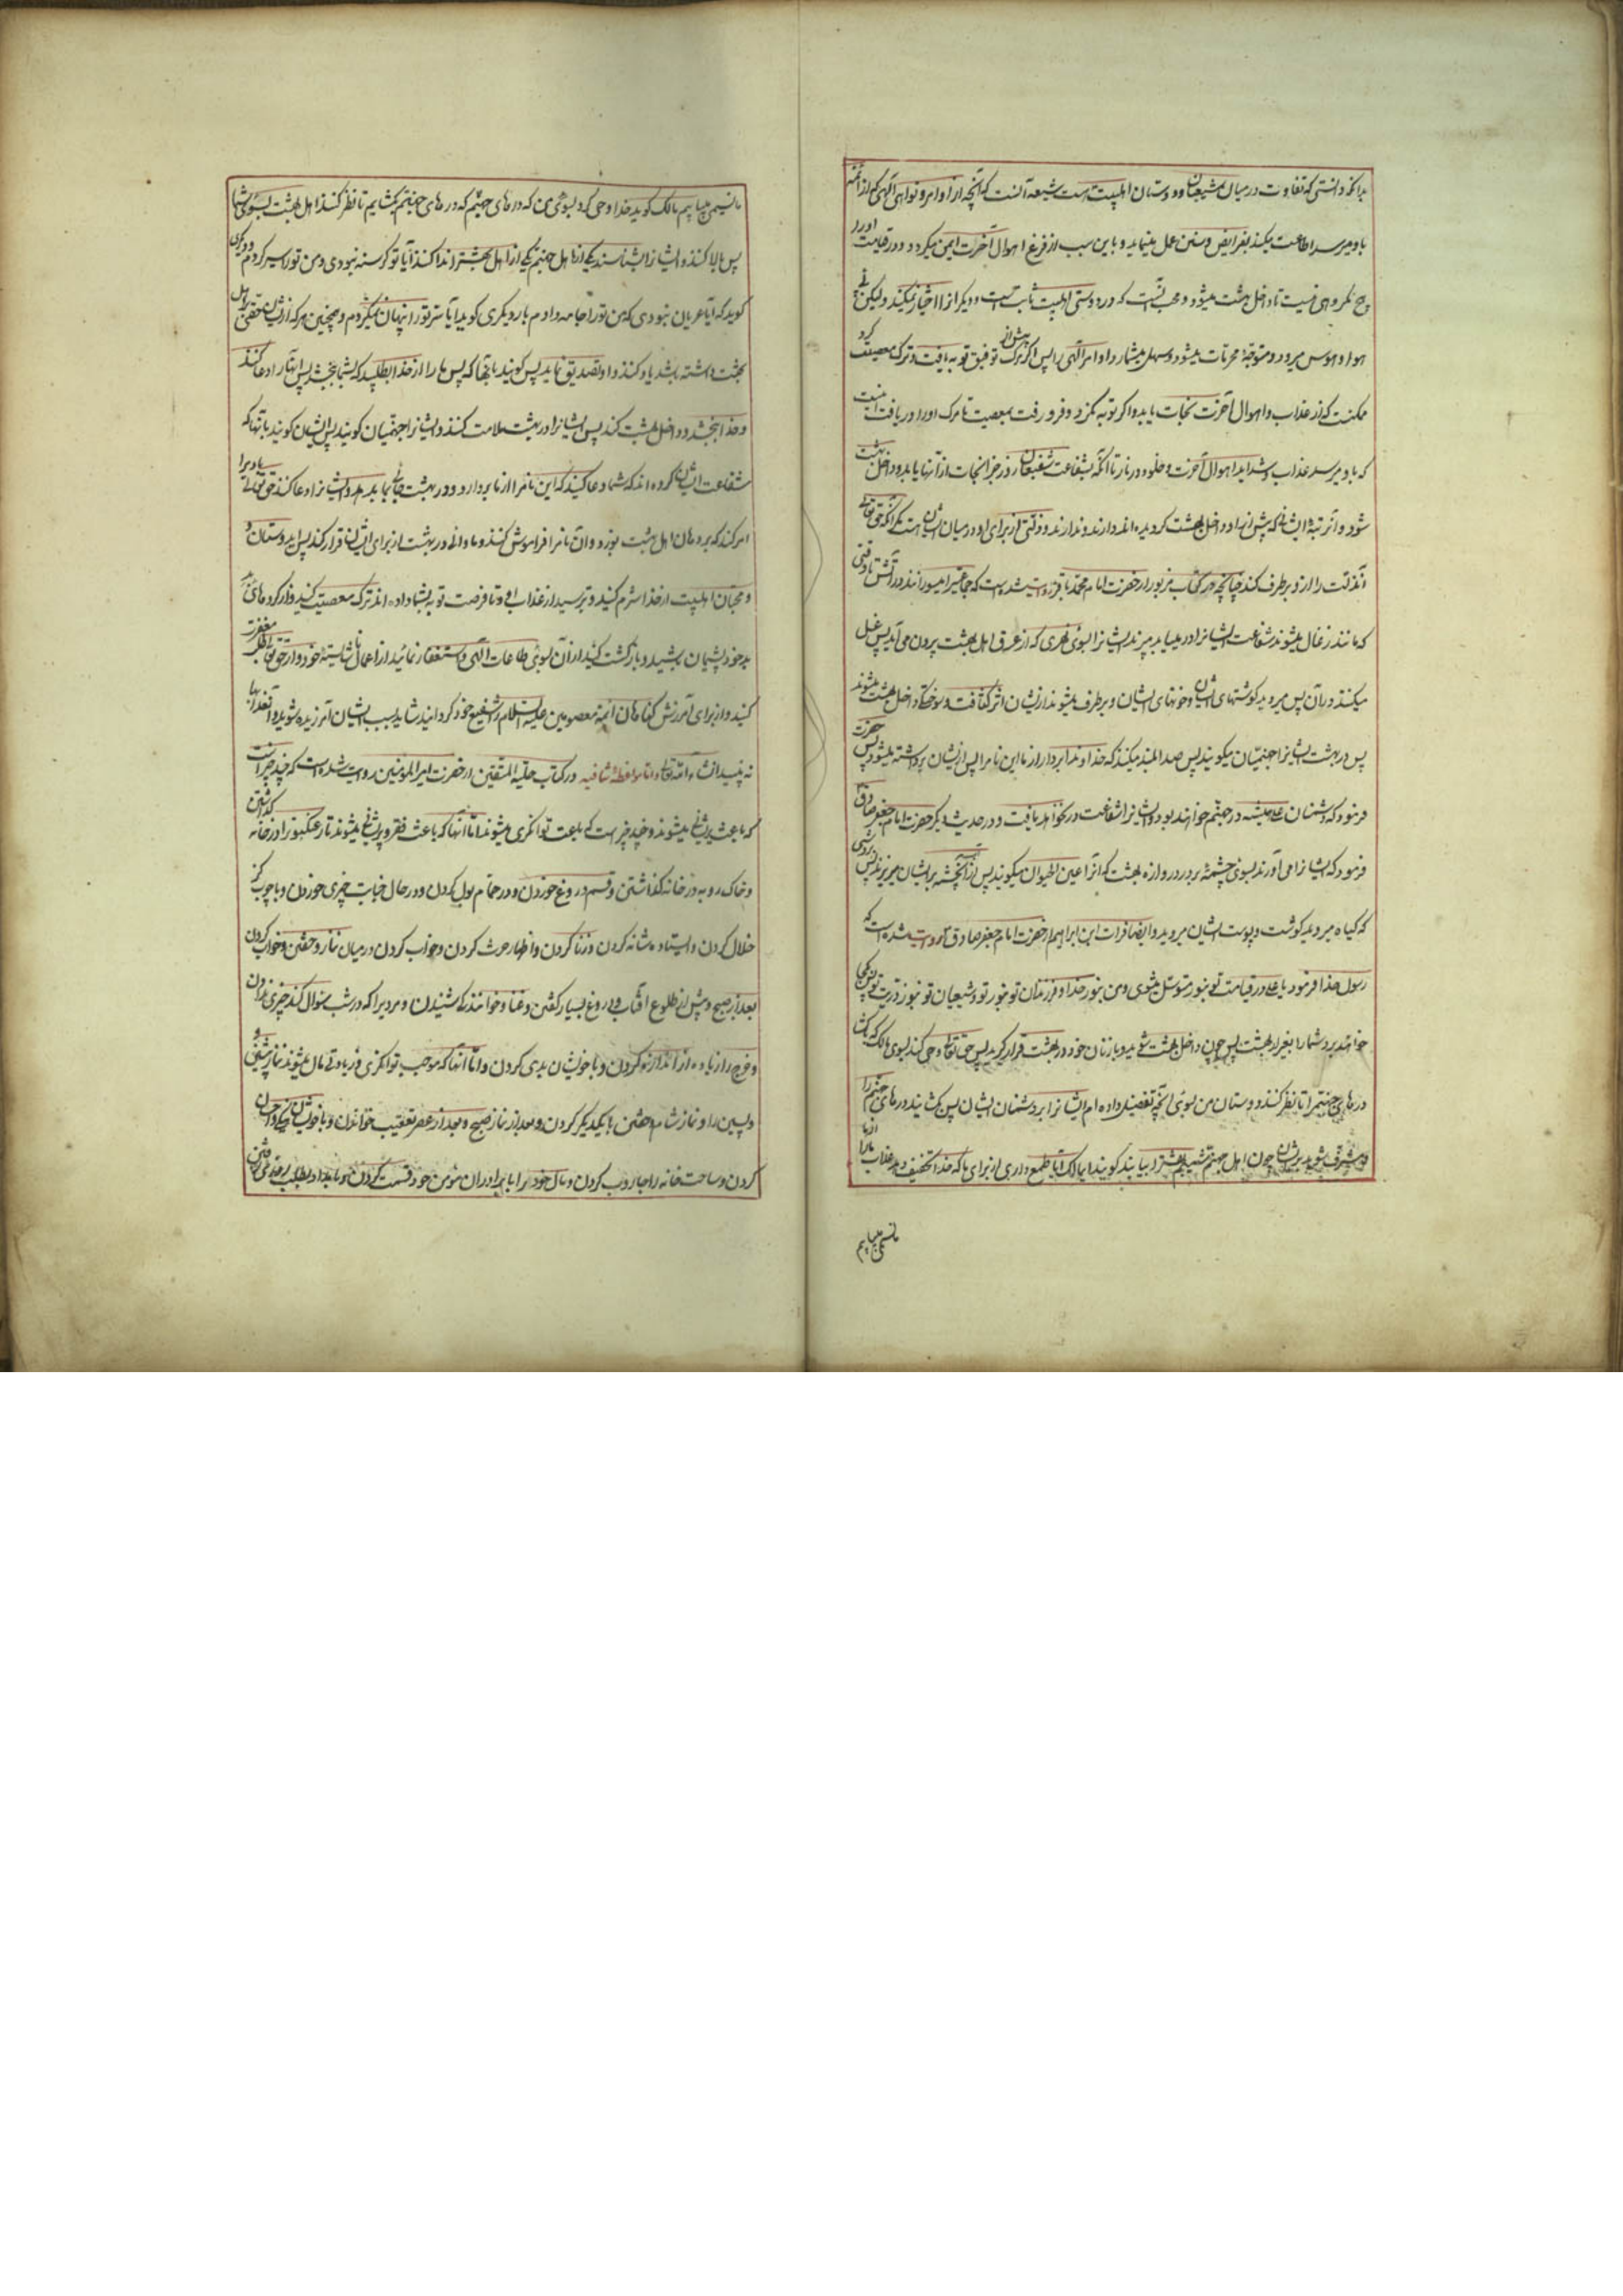 بدانکه دانستی که تفاوت در میان شیعیان و دوستان اهلبیت هست شیعه آنست که آنچه از اوامر و نواهی آلهی که از ائمه
باو میرسد اطاعت میکند بفرایض و سنن عمل مینماید و باین سبب از فزع اهوال آخرت ایمن میگردد و در قیامت او را
هیچ غمی نیست تا داخل بهشت میشود و محب آنست که در دوستی اهلبیت ثابت است و دیگرانرا اختیار نمیکند ولیکن
هوا و هوس میرود و متوجه محرمات میشود و سهل میشمارد اوامر آلهی را پس اگر پیش از مرگ توفیق توبه یافت و ترک معصیت کرد
ممکنست که از عذاب و اهوال آخرت نجات یابد و اگر توبه نکرد و فرو رفت بمعصیت تا مرگ او را دریافت
که باو میرسد عذاب و شداید اهوال آخرت و خلود در نار تا آنکه بشفاعت شفیعان روز جزا نجات از آنها یابد و داخل بهشت
شود و آن مرتبۀ ایشانی که پیش از او داخل بهشت گردیده اند ندارند و ذلتی از برای او در میان ایشان هست مگر آنکه حق تعالی
آنذلت را از او برطرف کند چنانچه در کتاب مزبور از حضرت امام محمد باقر روایت شده است که جماعتی را میسوزانند در آتش تا وقتی
که مانند زغال میشوند شفاعت ایشانرا در مییابد میبرند ایشانرا بسوی نهری که از عرق اهل بهشت بیرون می آید پس غسل
میکنند در آن پس میروید گوشتهای ایشان و خونهای ایشان و برطرف میشود از ایشان اثر کثافت و سوختگی و داخل بهشت میشوند
پس در بهشت ایشانرا جهنمیان میگویند پس صدا بلند میکنند که خداوندا بردار از ما این نام را پس از ایشان برداشته میشود پس حضرت
فرمود که دشمنان علی همیشه در جهنم خواهند بود و ایشانرا شفاعت در نخواهد یافت و در حدیث دیگر حضرت امام جعفر صادق
فرمود که ایشانرا می آورند بسوی چشمۀ بر در دروازه بهشت که آنرا عین الحیوان میگویند پس از آن چشمه بر ایشان میریزند پس
که گیاه میروید گوشت و پوست ایشان میروید و ایضا فرات ابن ابراهیم از حضرت امام جعفر صادق روایت شده است که
رسول خدا فرمود یا علی در قیامت تو بنور من متوسل میشوی و من بنور خدا و فرزندان تو بنور تو و شیعیان تو بنور ذریت تو پس کجا
خواهند برد شما را بغیر از بهشت پس چون داخل بهشت شوید و با زنان خود در بهشت قرار گیرید پس حق تعالی وحی کند بسوی مالک که بگشا
درهای جهنم را تا نظر کنند دوستان من بسوی آنچه تفضیل داده ام ایشانرا بر دشمنان ایشان پس گشایند درهای جهنم را
و مشرف شوید بر ایشان چون اهل جهنم شمیم بهشت را بیابند گویند ای مالک آیا طمع داری از برای ما که خدا تخفیف دهد عذاب ما را
ما نسیمی مییابیم
ما نسیمی مییابیم مالک گوید خدا وحی کرد بسوی من که درهای جهنم که درهای جهنم بگشایم تا نظر کنند اهل بهشت بسوی شما
پس بالا کنند و ایشانرا بشناسند یکی از اهل جهنم یکی از اهل بهشت را ندا کند آیا تو گرسنه نبودی و من تو را سیر کردم و دیگری
گوید که آیا عریان نبودی که من تو را جامه دادم باز دیگری گوید آیا سر تو را پنهان نمیکردم و همچنین هر که از ایشان حقی بر اهل
بهشت داشته باشد یاد کند و او تصدیق نماید پس گویند بآنها که پس ما را از خدا بطلبید که بشما بخشد پس آنها را دعا کنند
و خدا بخشد و داخل بهشت کند پس ایشانرا در بهشت ملامت کنند و ایشانرا جهنمیان گویند پس ایشان گویند بآنها که
شفاعت ایشان کرده اند که شما دعا کنید که این نام را از ما بردارد و در بهشت جای نماید پس ایشانرا دعا کنند حق تعالی بادی را
امر کند که بر دهان اهل بهشت بوزد و آن نام را فراموش کنند و ماوائی در بهشت از برای ایشان قرار کند پس ای دوستان
و محبان اهلبیت از خدا شرم کنید و بترسید از عذاب او و تا فرصت توبه بشما داده اند ترک معصیت کنید و از کرده های
بد خود پشیمان باشید و بازگشت کنید از آن بسوی طاعات آلهی و استغفار نمائید از اعمال ناشایستۀ خود و از حق تعالی طلب مغفرت
کنید و از برای آمرزش گناهان ائمۀ معصومین علیهم السلام را شفیع خود گردانید شاید بسبب ایشان آمرزیده شوید و آنعذابها
نه بینید انشاء الله تعالی و اما مواعظ شافیه در کتاب حلیه المتقین از حضرت امیرالمومنین روایت شده است که چند چیز است
که باعث پریشانی میشوند و چند چیز است که باعث توانگری میشوند اما آنها که باعث فقر و پریشانی میشوند تار عنکبوت را در خانه گذاشتن
و خاک روبه در خانه گذاشتن و قسم دروغ خوردن و در حمام بول کردن و در حال جنابت چیزی خوردن و با چوب گز
خلال کردن و ایستاده شانه کردن و زنا کردن و اظهار حرث کردن و خواب کردن در میان نماز و خفتن و خواب کردن
بعد از صبح و پیش از طلوع آفتاب و دروغ بسیار گفتن و غنا و خوانندگی شنیدن و مردیرا که در شب سوال کند چیزی ندادن
و خرج را زیاده از اندازه کردن و با خویشان بدی کردن و اما آنها که موجب توانگری و زیادتی مال میشوند نماز پیشین و
پسین را و نماز شام و خفتن با یکدیگر کردن و بعد از نماز صبح و بعد از عصر تعقیب خواندن و با خویشان نیکی و احسان
کردن و ساحت خانه را جاروب کردن و مال خود را با برادران مومن خود قسمت کردن و بامداد بطلب روزی رفتن